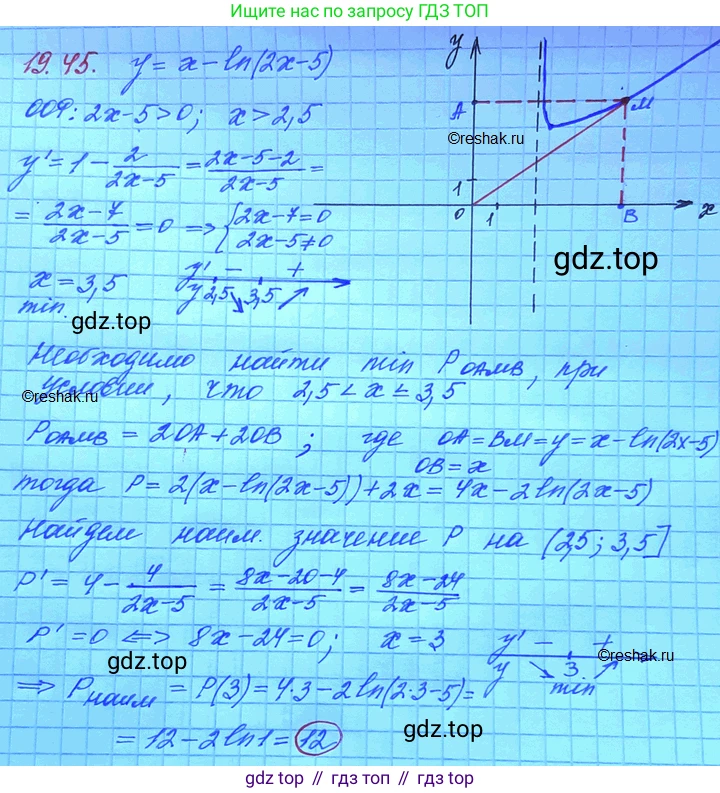 Ищите нас по запросу ГДЗ ТОП
19.45. y = x - ln(2x-5)
ООФ: 2x-5>0; x>2,5
y' = 1 - 2/(2x-5) = (2x-5-2)/(2x-5) =
= (2x-7)/(2x-5) = 0 => {2x-7=0
2x-5≠0
x = 3,5 y' - +
min y 2,5 3,5
y
A
M
©reshak.ru
1
0 1 B x
gdz.top
gdz.top
Необходимо найти min P OAMB, при
условии, что 2,5 < x ≤ 3,5
©reshak.ru
P OAMB = 2OA + 2OB; где OA = BM = y = x - ln(2x-5)
OB = x
тогда P = 2(x - ln(2x-5)) + 2x = 4x - 2ln(2x-5)
Найдем наим. значение P на (2,5; 3,5]
P' = 4 - 4/(2x-5) = (8x-20-4)/(2x-5) = (8x-24)/(2x-5)
P' = 0 <=> 8x-24=0; x = 3 y' - +
y 3
min
©reshak.ru
gdz.top
=> P наим = P(3) = 4·3 - 2ln(2·3-5) =
= 12 - 2ln1 = 12
gdz.top
gdz.top // гдз топ // gdz.top